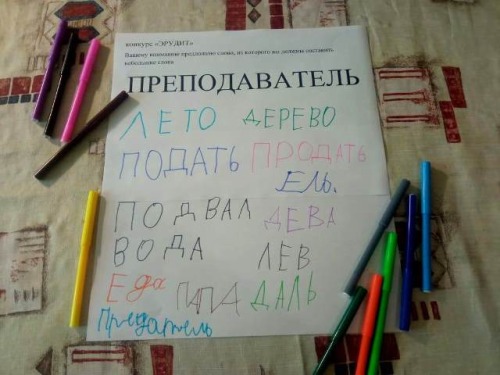 конкурс «ЭРУДИТ»
Вашему вниманию предложено слово, из которого вы должны составить
небольшие слова
ПРЕПОДАВАТЕЛЬ
ЛЕТО ДЕРЕВО
ПОДАТЬ ПРОДАТЬ
ЕЛЬ.
ПОДВАЛ ДЕВА
ВОДА ЛЕВ
Еда ПАПА ДАЛЬ
Предатель